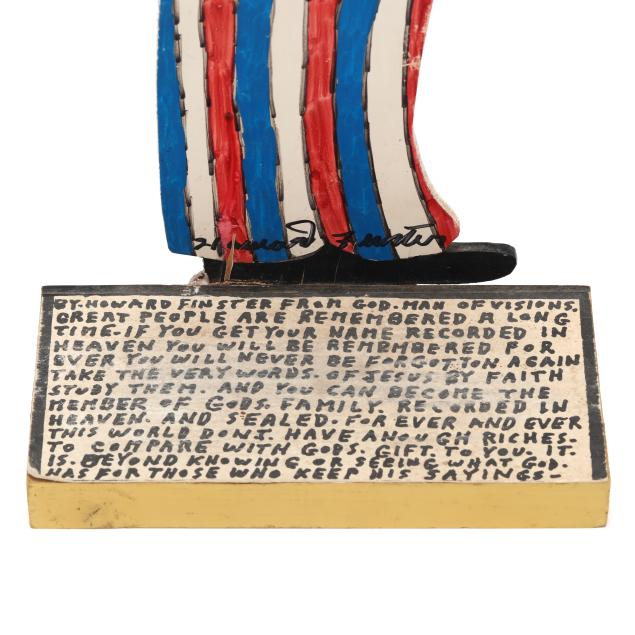 Howard Finster
BY.HOWARD FINSTER FROM GOD.MAN OF VISIONS.
GREAT PEOPLE ARE REMEMBERED A LONG
TIME.IF YOU GET YOUR NAME RECORDED IN
HEAVEN YOU WILL BE REMEMBERED FOR
EVER YOU WILL NEVER BE FORGOTTON AGAIN
TAKE THE VERY WORDS. OF JESUS BY FAITH
STUBY THEM. AND YOU CAN BECOME THE
MEMBER OF GODS. FAMILY. RECORDED IN
HEAVEN. AND SEALED. FOR EVER AND EVER
THIS WORLD DON.T. HAVE ANOUGH RICHES.
TO COMPARE WITH GODS. GIFT. TO YOU. IT.
IS. BEYOND KNOWING OR SEEING WHAT GOD.
HAS FOR THOSE WHO KEEP HIS SAYINGS-